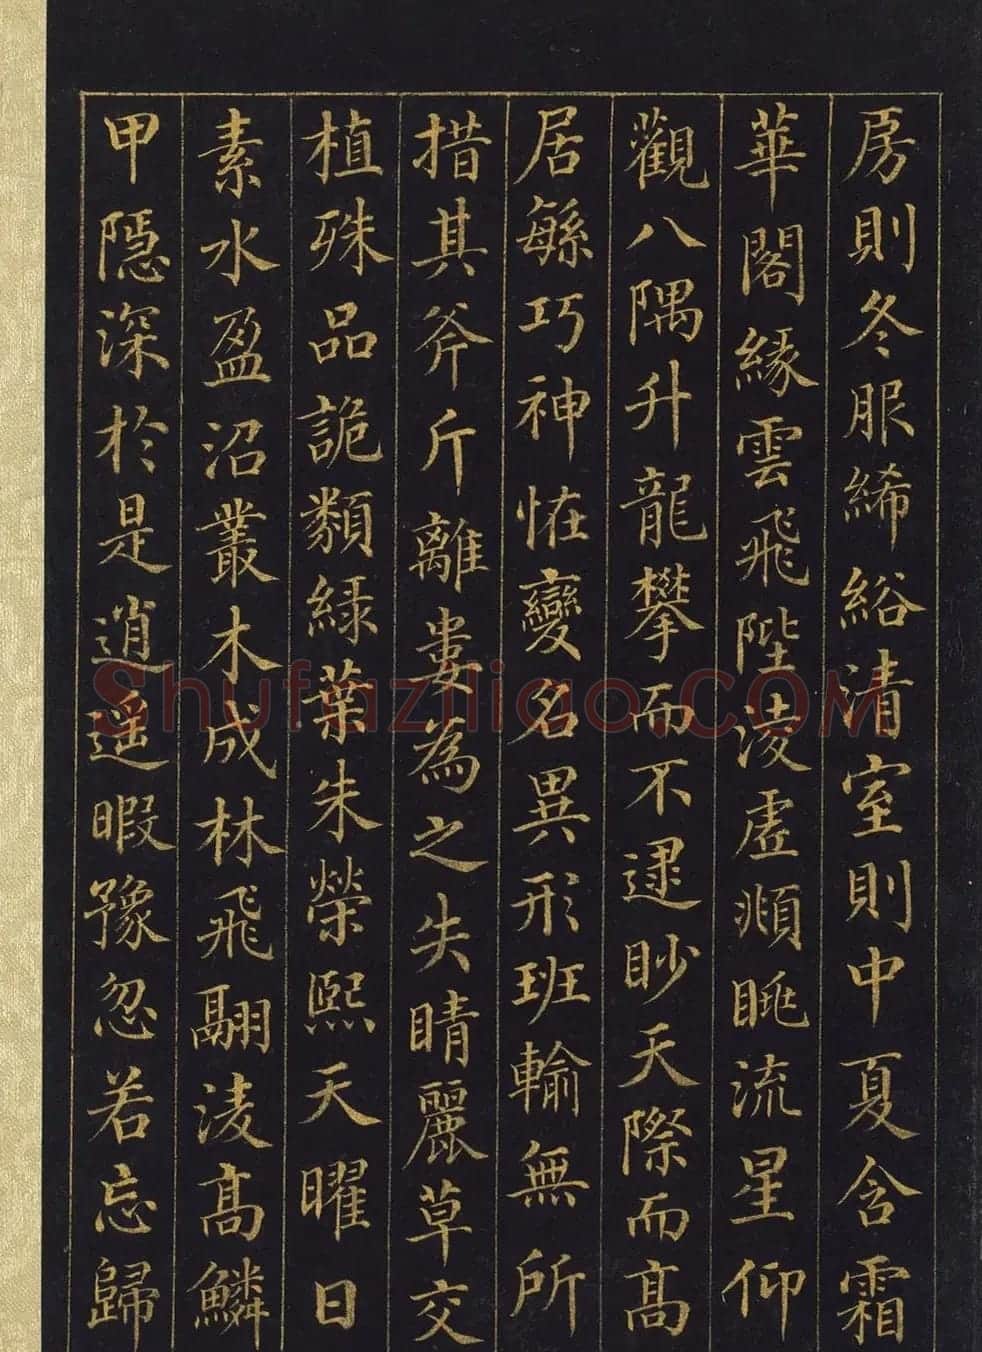 房則冬服絺綌清室則中夏含霜
華閣緣雲飛陛淩虛頫眺流星仰
觀八隅升龍攀而不逮眇天際而髙
居緐巧神恠變名異形班輸無所
措其斧斤離婁為之失睛麗草交
植殊品詭類綠葉朱榮熙天曜日
素水盈沼叢木成林飛翮淩髙鱗
甲隱深於是逍遙暇豫忽若忘歸
Shufaziliao.COM